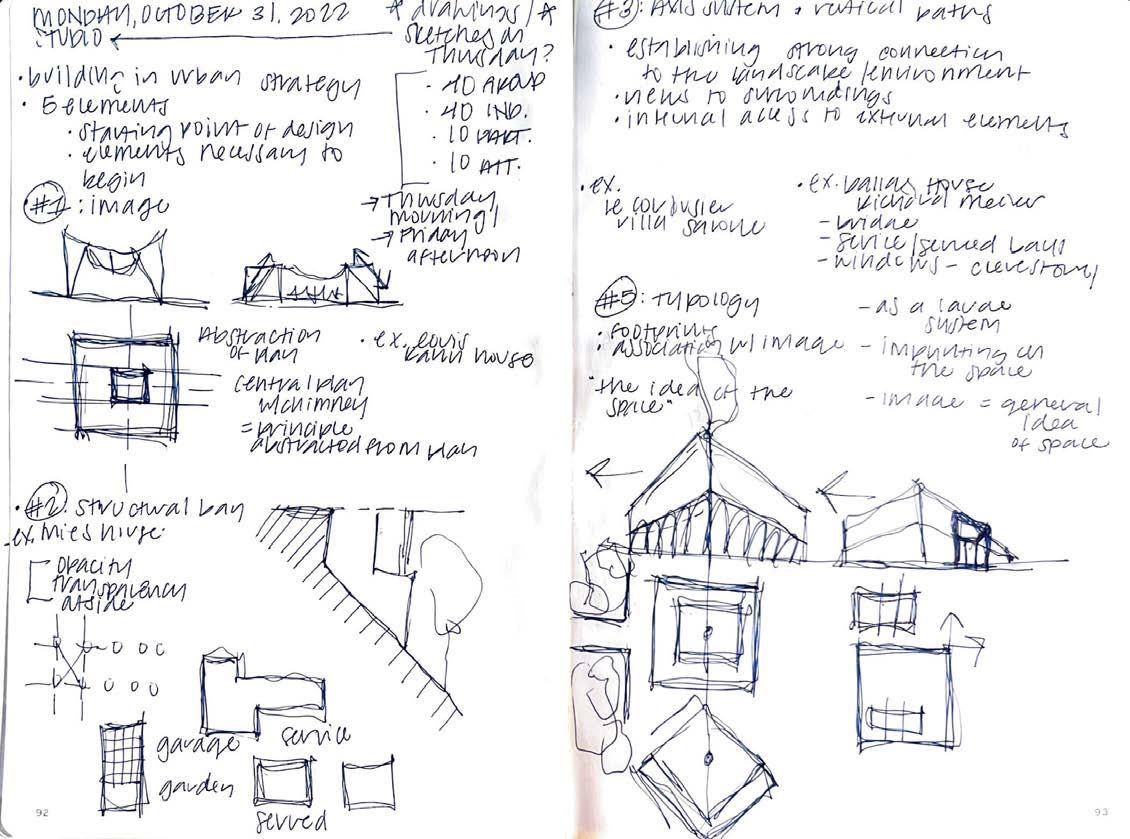 MONDAY, OCTOBER 31. 2022
STUDIO
* drawings / *
sketches on
Thursday?
• 40 GROUP
• 40 IND.
• 10 PART.
• 10 ATT.
→ Thursday
morning/
→ Friday
afternoon
• building in urban strategy
• 5 elements
• starting point of design
• elements necessary to
begin
#1: image
Abstraction
of plan
• ex. Louis
Kahn house
central plan
w/chimney
= principle
abstracted from plan
• #2: structural bay
ex. Mies house:
opacity
transparency
garage
service
garden
served
92
#3: Axis system + vertical paths
• establishing strong connection
to the landscape/environment
• views to surroundings
• internal access to external elements
• ex.
le corbusier
villa savoye
• ex. Dallas House
Richard Meier
- bridge
- service/served bays
- windows - clerestory
#5: typology
• footprints
• association w/image
"the idea of the
space"
- as a large
system
- imprinting on
the space
- image = general
idea
of space
93